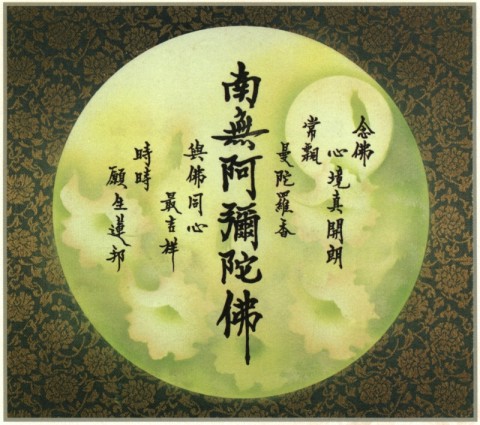 念佛
心境真開朗
常飄
曼陀羅香
南無阿彌陀佛
與佛同心
最吉祥
時時
願生蓮邦